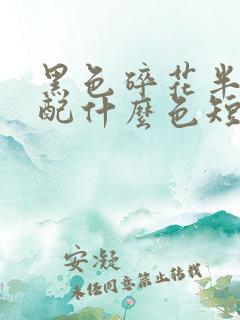 黑色碎花半
配什麼色短
安凝
未任同意禁止转载